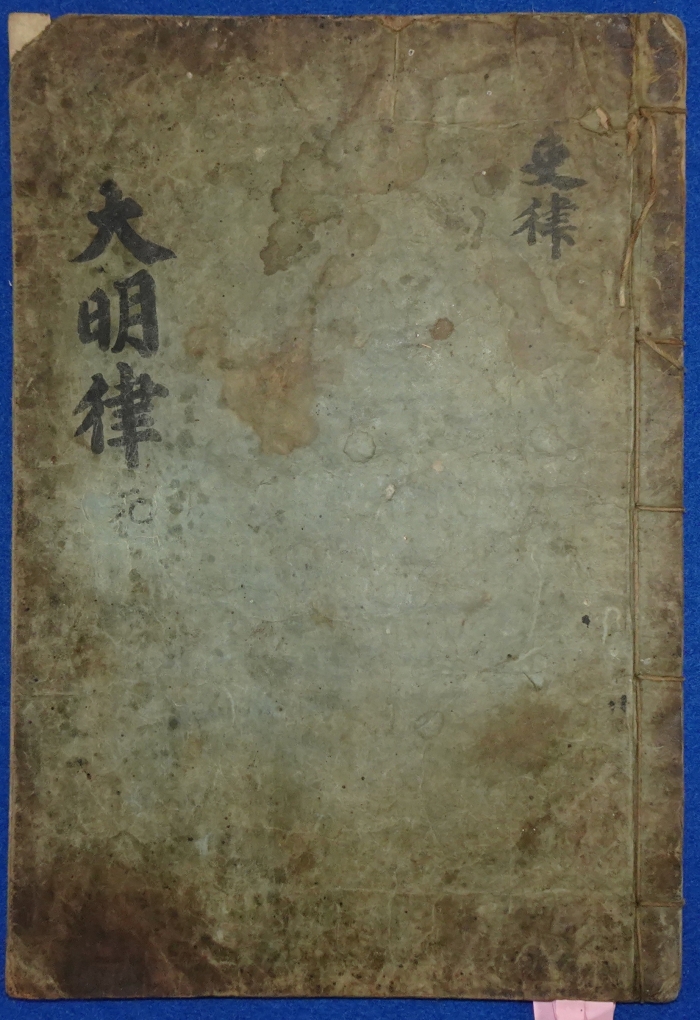 吏律
大明律